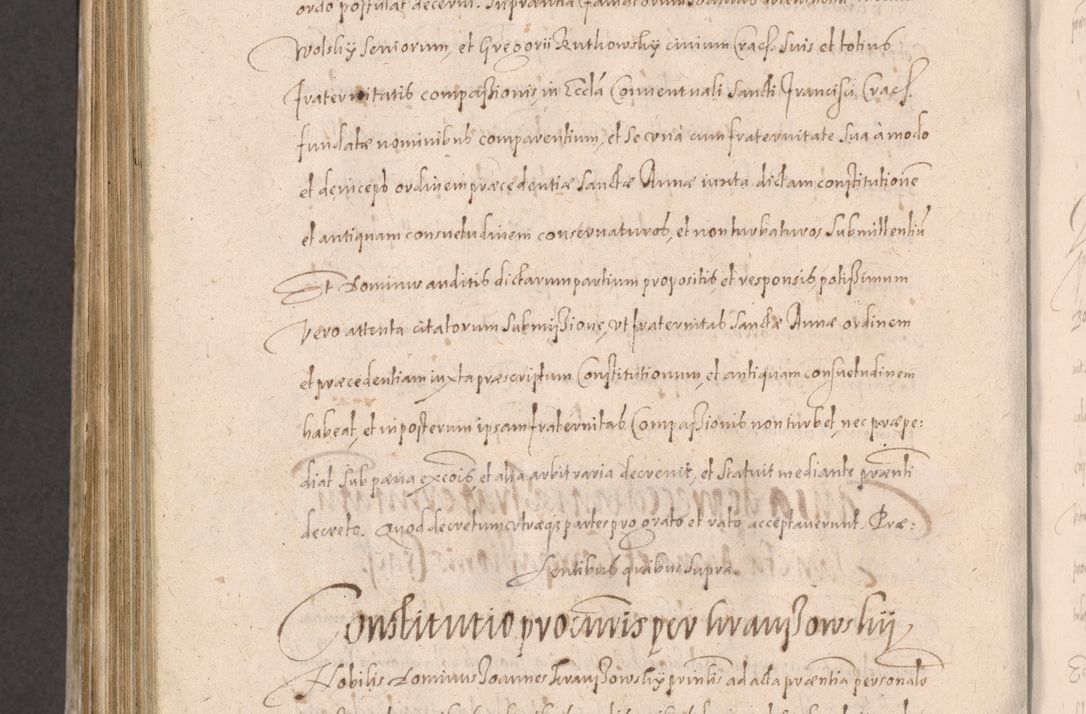 ordo postulat decerni. In præsentia famatorum Joannis
Wolsky Seniorum, et Gregorii Ruthowsky civium Crac͡. Suis et totius
Fraternitatis compaßionis, in Eccl͡a Conventuali Sancti Francisci Crac͡.
fundatæ nominibus comparentium, et se cum fraternitate sua a modo
et deinceps ordinem præcedentiæ Sanctæ Annæ iuxta dictam constitutione͂
et antiquam consvetudinem conservaturos, et non turbaturos Submittentiu͂
Et Dominus auditis dictarum partium propositis, et responsis potißimum
Vero attenta citatorum Submißione, ut fraternitas Sanctæ Annæ ordinem
et præcedentiam iuxta præscriptum Constitutionum, et antiquam consuetudinem
habeat, et inposterum ipsam fraternitas Compaßionis non turbet, nec præpe:
diat Sub pæna exco͂is et alia arbitraria decrevit, et Statuit mediante præ͂nti
decreto. Quod decretum utraq3 pars pro grato et rato acceptaverunt. Præ:
sentibus quibus Supra.
Constitutio procu͂ris per Kraußowsky
Nobilis Dominus Joannes Kraußowsky prin͂lis ad acta præ͂ntia personal͂r